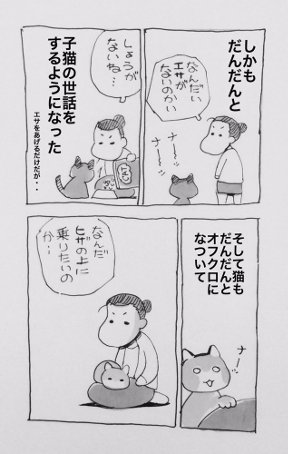 しかも
だんだんと
なんだい
エサが
ないのかい
ナーッ
ナーッ
しょうが
ないね…
子猫の世話を
するようになった
エサをあげるだけだが・・
そして猫も
だんだんと
オフクロに
なついて
ナーッ
なんだ
ヒザの上に
乗りたいの
か…